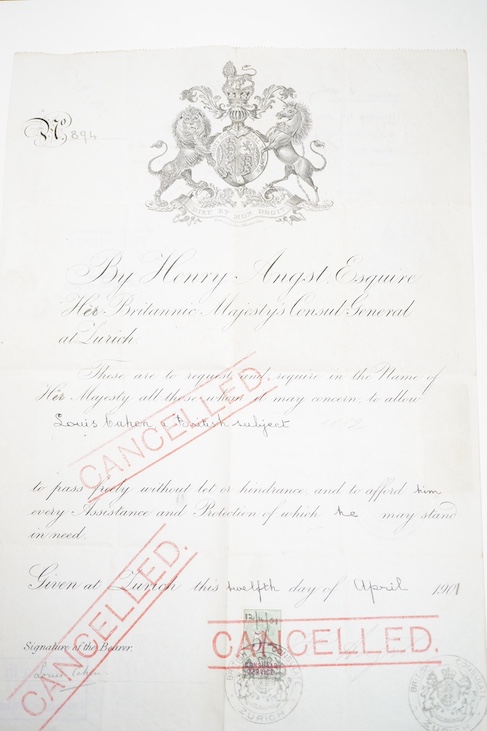 No. 894
DIEU ET MON DROIT
By Henry Angst Esquire
His Britannic Majesty's Consul General
at Zurich.
These are to request and require in the Name of
His Majesty all those whom it may concern, to allow
Louis Cuhon, a British subject
to pass freely without let or hindrance and to afford him
every Assistance and Protection of which he may stand
in need.
Given at Zurich this twelfth day of April 1901
CANCELLED.
CANCELLED.
CANCELLED.
12/4/01
Signature of the Bearer.
Louis
ZURICH
ZURICH